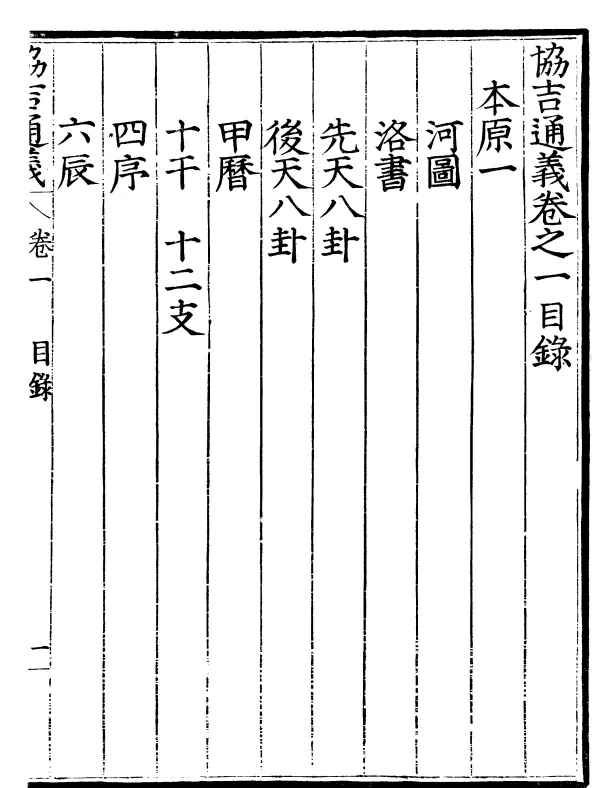 協吉通義卷之一目錄
本原一
河圖
洛書
先天八卦
後天八卦
甲曆
十干　十二支
四序
六辰
協吉通義　卷一　目錄　二